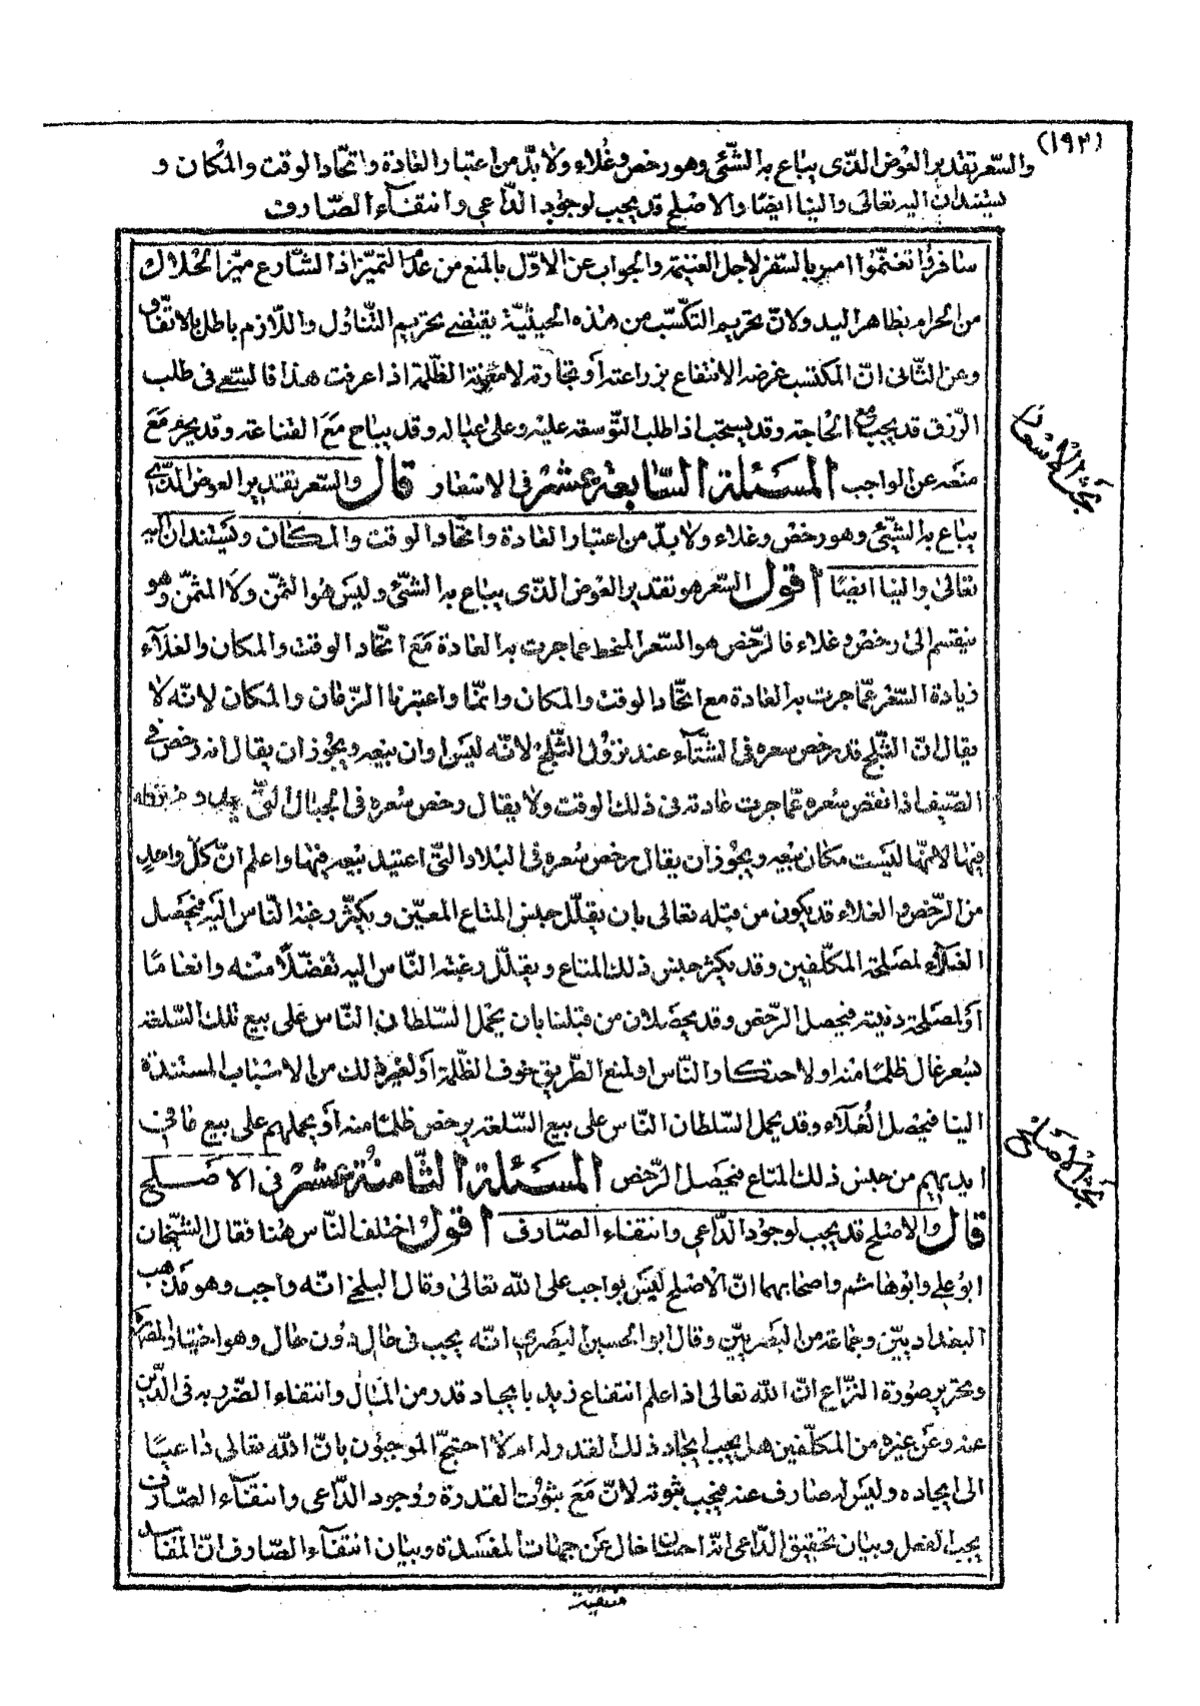 (١٩٢)
والسّعر تقدير العوض الذّى يباع به الشّئ وهو رخص وغلاء ولا بدّ من اعتبار العادة واتّحاد الوقت والمكان و
يستندان اليه تعالى والينا ايضا والاصلح قد يجب لوجود الدّاعى وانتفاء الصّارف
سافروا تغنموا امر بالسّفر لاجل الغنيمة والجواب عن الاوّل بالمنع من عدم التميّز اذ الشّارع ميّز الحلال
من الحرام بظاهر اليد ولانّ تحريم التكسّب من هذه الحيثيّة يقتضى تحريم التّناول واللّازم باطل بالاتّفاق
وعن الثّانى انّ المكتسب غرضه الانتفاع بزراعته أو تجارته لا معونة الظّلمة اذا عرفت هذا فالسّعى فى طلب
الرّزق قد يجب مع الحاجة وقد يستحب اذا طلب التّوسعة عليه وعلى عياله وقد يباح مع الغناء عنه وقد يحرم مع
منعه عن الواجب المسئلة السّابعة عشر فى الاسعار قال والسّعر تقدير العوض الذّى
يباع به الشّئ وهو رخص وغلاء ولا بدّ من اعتبار العادة واتّحاد الوقت والمكان ويستندان اليه
تعالى والينا ايضًا اقول السّعر هو تقدير العوض الذّى يباع به الشّئ وليس هو الثمن ولا المثمن وهو
ينقسم الى رخص وغلاء فالرّخص هو السّعر المنحط عما جرت به العادة مع اتّحاد الوقت والمكان والغلآء
زيادة السّعر عمّا جرت به العادة مع اتّحاد الوقت والمكان وانّما واعتبرنا الزّمان والمكان لانّه لا
يقال انّ الثّلج قد رخص سعره فى الشّتآء عند نزول الثّلج لانّه ليس اوان بيعه ويجوز ان يقال انه رخص فى
الصّيف اذا نقص سعره عمّا جرت عادته فى ذلك الوقت ولا يقال رخص سعره فى الجبال التّى يدوم نزوله
فيها لانّها ليست مكان بيعه ويجوز ان يقال رخص سعره فى البلاد التّى اعتيد بيعه فيها واعلم انّ كلّ واحد
من الرّخص والغلاء قد يكون من قبله تعالى بان يقلّل جنس المتاع المعيّن ويكثّر رغبة النّاس اليه فيحصل
الغلآء لمصلحة المكلّفين وقد يكثر جنس ذلك المتاع ويقلّل رغبة النّاس اليه تفضّلًا منه وانعامًا
أو لمصلحة دينيّة فيحصل الرّخص وقد يحصلان من قبلنا بان يحمل السّلطان النّاس على بيع تلك السّلعة
بسعر غال ظلمًا منه او لاحتكار النّاس او لمنع الطّريق خوف الظّلمة أو لغير ذلك من الاسباب المستندة
الينا فيحصل الغلآء وقد يحمل السّلطان النّاس على بيع السّلعة برخص ظلمًا منه أو يحملهم على بيع ما فى
ايديهم من جنس ذلك المتاع فيحصل الرّخص المسئلة الثّامنة عشر فى الاصلح
قال والاصلح قد يجب لوجود الدّاعى وانتفاء الصّارف اقول اختلف النّاس هنا فقال الشّيخان
ابو على وابو هاشم واصحابهما انّ الاصلح ليس بواجب على الله تعالى وقال البلخى انّه واجب وهو مذهب
البغداديّين وجماعة من البصريّين وقال ابو الحسين البصرى انّه يجب فى حال دون حال وهو اختيار المصنّف
وتحرير صورة النّزاع انّ الله تعالى اذا علم انتفاع زيد بايجاد قدر من المال وانتفاء الضّرر به فى الدّين
عنه وعن غيره من المكلّفين هل يجب ايجاد ذلك القدر له ام لا احتجّ الموجبون بانّ الله تعالى داعيًا
الى ايجاده وليس له صارف عنه فيجب ثبوته لانّ مع ثبوت القدرة ووجود الدّاعى وانتفآء الصّارف
يجب الفعل وبيان تحقيق الدّاعى انّه احسان خال عن جهات المفسدة وبيان انتفآء الصّارف انّ المفاسد
منتفية
بحث الاسعار
بحث الاصلح